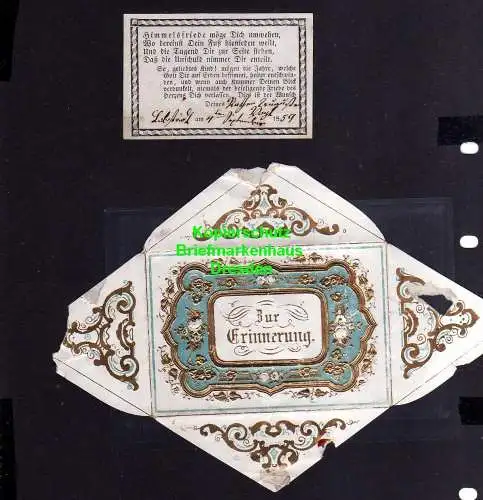 Himmelsfriede möge Dich umwehen,
Wo dereinst Dein Fuß hienieden weilt,
Und die Tugend Dir zur Seite stehen,
Daß die Unschuld nimmer Dir enteilt.
So, geliebtes Kind! mögen die Jahre, welche
Gott Dir auf Erden bestimmt, heiter entschwin-
den, und wenn auch Kummer Deinen Blick
verdunkelt, niemals der beseligende Friede des
Herzens Dich verlassen. Dies ist der Wunsch
Deines
am 4ten September 1859
Kopierschutz
Briefmarkenhaus
Dresden
Zur
Erinnerung.